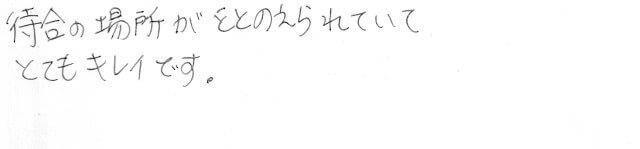 待合の場所がととのえられていて
とてもキレイです。